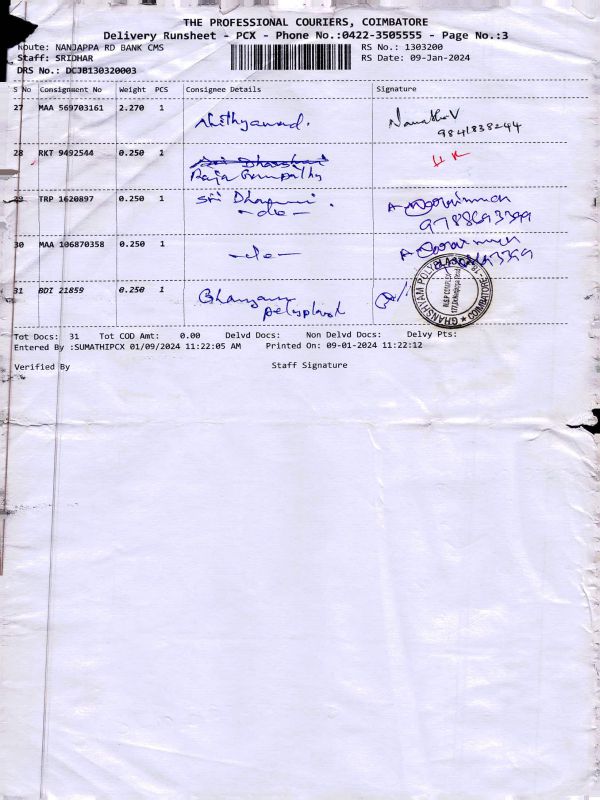 THE PROFESSIONAL COURIERS, COIMBATORE
Delivery Runsheet - PCX - Phone No.:0422-3505555 - Page No.:3
Route: NANJAPPA RD BANK CMS
RS No.: 1303200
Staff: SRIDHAR
RS Date: 09-Jan-2024
DRS No.: DCJB130320003
S No Consignment No Weight PCS Consignee Details Signature
27 MAA 569703161 2.270 1
9841838244
28 RKT 9492544 0.250 1
Raja Ganpathy
29 TRP 1620897 0.250 1 Sri Dharani.
-do-
9788693399
30 MAA 106870358 0.250 1 -do-
31 BDI 21859 0.250 1
GHANSHYAM POLY
COIMBATORE
Tot Docs: 31 Tot COD Amt: 0.00 Delvd Docs: Non Delvd Docs: Delvy Pts:
Entered By :SUMATHIPCX 01/09/2024 11:22:05 AM Printed On: 09-01-2024 11:22:12
Verified By Staff Signature